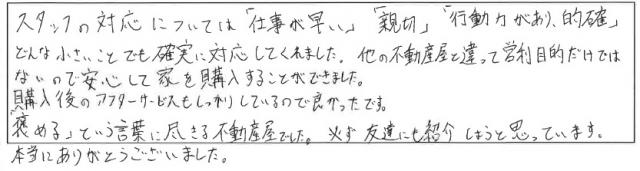 スタッフの対応については「仕事が早い」「親切」「行動力があり、的確」
どんな小さいことでも確実に対応してくれました。他の不動産屋と違って営利目的だけでは
ないので安心して家を購入することができました。
購入後のアフターサービスもしっかりしているので良かったです。
「褒める」という言葉に尽きる不動産屋でした。必ず友達にも紹介しようと思っています。
本当にありがとうございました。